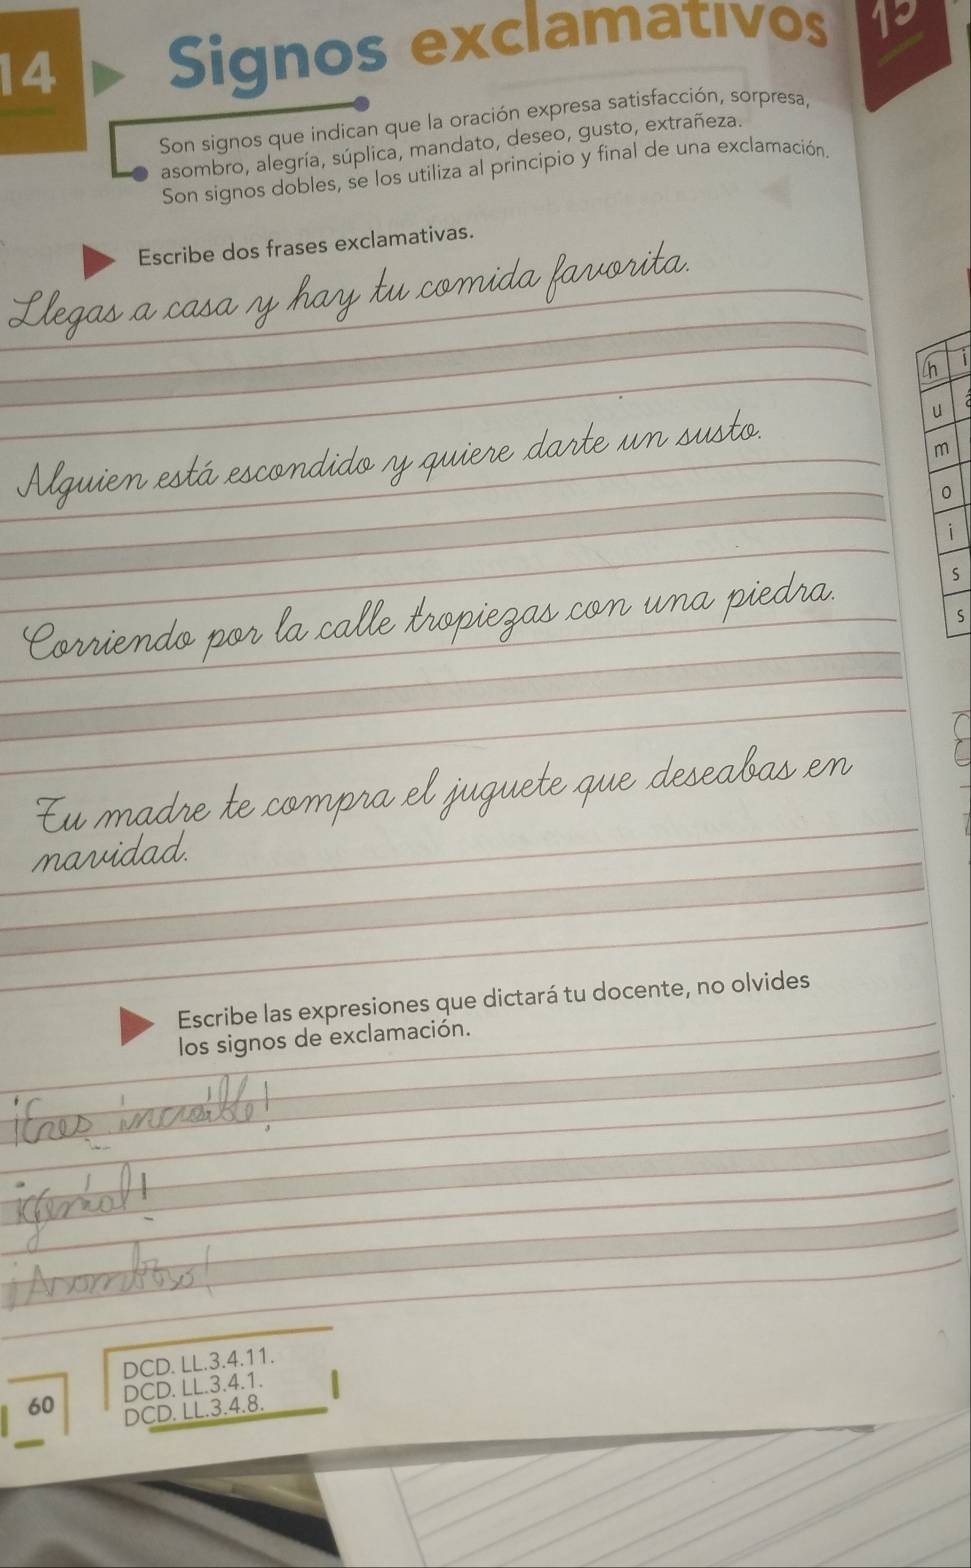 14
Signos exclamativos
15
Son signos que indican que la oración expresa satisfacción, sorpresa,
asombro, alegría, súplica, mandato, deseo, gusto, extrañeza.
Son signos dobles, se los utiliza al principio y final de una exclamación.
Escribe dos frases exclamativas.
Llegas a casa y hay tu comida favorita.
Alguien está escondido y quiere darte un susto.
Corriendo por la calle tropiezas con una piedra.
Tu madre te compra el juguete que deseabas en
navidad.
Escribe las expresiones que dictará tu docente, no olvides
los signos de exclamación.
¡Eres increíble!
¡Genial!
DCD. LL.3.4.11.
DCD. LL.3.4.1.
DCD. LL.3.4.8.
60
h i
u
m
o
i
s
s